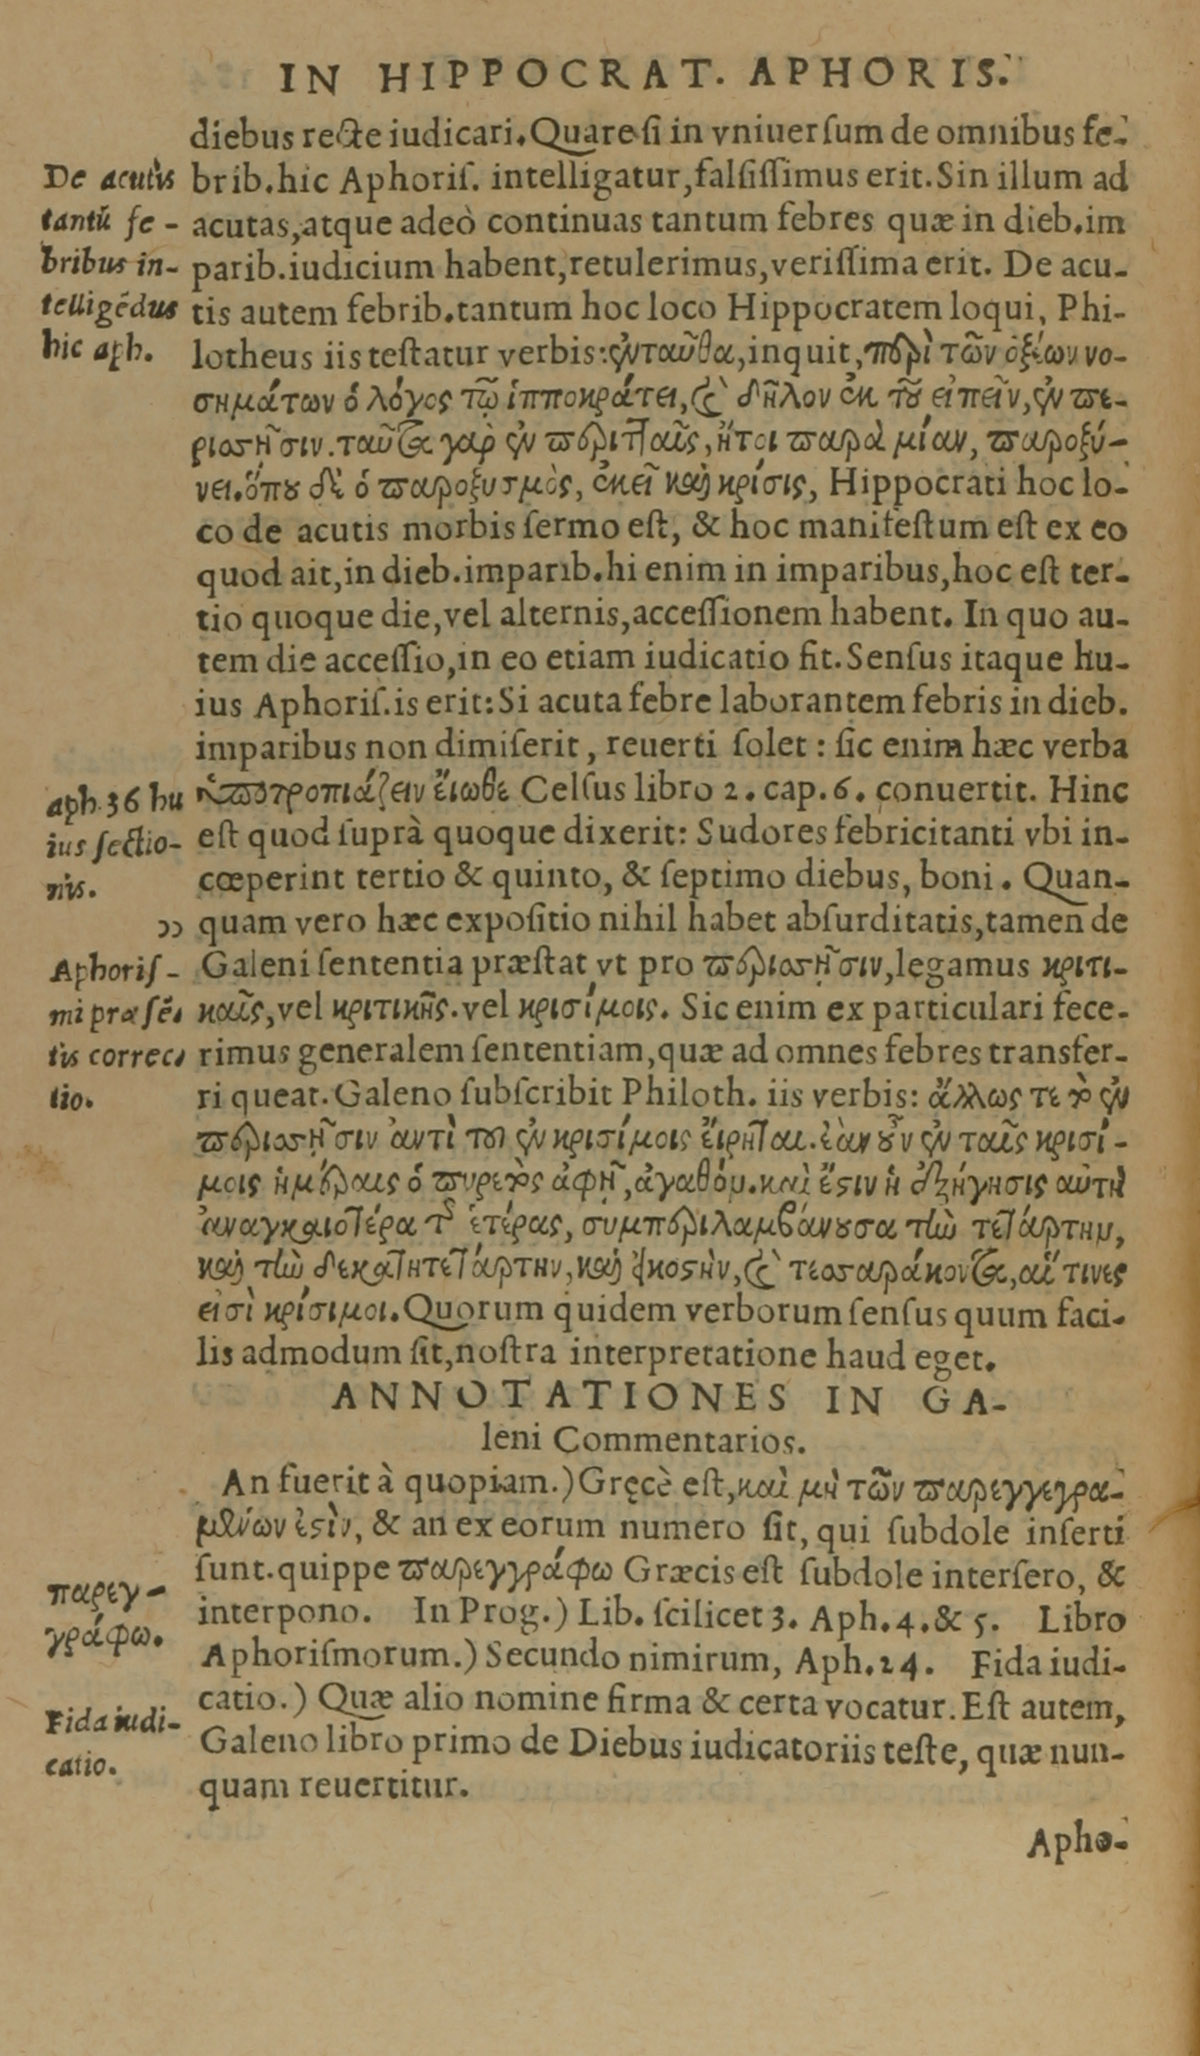 IN HIPPOCRAT. APHORIS.
diebus recte iudicari. Quare si in vniuersum de omnibus fe-
brib. hic Aphoris. intelligatur, falsissimus erit. Sin illum ad
acutas, atque adeò continuas tantum febres quæ in dieb. im
parib. iudicium habent, retulerimus, verissima erit. De acu-
tis autem febrib. tantum hoc loco Hippocratem loqui, Phi-
lotheus iis testatur verbis: ἐνταῦθα, inquit, περὶ τῶν ὀξέων νο-
σημάτων ὁ λόγος τῷ ἱπποκράτει, καὶ δῆλον ἐκ τοῦ εἰπεῖν, ἐν πε-
ριοσῇσιν. ταῦτα γαρ ἐν περιτταῖς, ἤτοι παρὰ μίαν, παροξύ-
νει. ὅπου δὲ ὁ παροξυσμὸς, ἐκεῖ καὶ κρίσις, Hippocrati hoc lo-
co de acutis morbis sermo est, & hoc manifestum est ex eo
quod ait, in dieb. imparib. hi enim in imparibus, hoc est ter-
tio quoque die, vel alternis, accessionem habent. In quo au-
tem die accessio, in eo etiam iudicatio fit. Sensus itaque hu-
ius Aphoris. is erit: Si acuta febre laborantem febris in dieb.
imparibus non dimiserit, reuerti solet: sic enim hæc verba
ὑποτροπιάζειν ἔιωθε Celsus libro 2. cap. 6. conuertit. Hinc
est quod suprà quoque dixerit: Sudores febricitanti vbi in-
cœperint tertio & quinto, & septimo diebus, boni. Quan-
quam vero hæc expositio nihil habet absurditatis, tamen de
Galeni sententia præstat vt pro περιοσῇσιν, legamus κριτι-
καῖς, vel κριτικῇς. vel κρισίμοις. Sic enim ex particulari fece-
rimus generalem sententiam, quæ ad omnes febres transfer-
ri queat. Galeno subscribit Philoth. iis verbis: ἄλλως τε τὸ ἐν
περιοσῇσιν ἀντὶ τοῦ ἐν κρισίμοις ἔιρηται. ἐὰν οὖν ἐν ταῖς κρισί-
μοις ἡμέραις ὁ πυρετὸς ἀφῇ, ἀγαθόν. καὶ ἔστιν ἡ ἐξήγησις αὐτὴ
ἀναγκαιοτέρα τῆς ἑτέρας, συμπεριλαμβάνουσα τὴν τετάρτην,
καὶ τὴν δεκατητετάρτην, καὶ ἐικοστὴν, καὶ τεσσαράκοντα, αἵ τινες
εἰσὶ κρίσιμοι. Quorum quidem verborum sensus quum faci-
lis admodum sit, nostra interpretatione haud eget.
ANNOTATIONES IN GA-
leni Commentarios.
An fuerit à quopiam.) Gręcè est, καὶ μὴ τῶν παρεγγεγρα-
μένων ἐστὶν, & an ex eorum numero sit, qui subdole inserti
sunt. quippe παρεγγράφω Græcis est subdole intersero, &
interpono. In Prog.) Lib. scilicet 3. Aph. 4. & 5. Libro
Aphorismorum.) Secundo nimirum, Aph. 24. Fida iudi-
catio.) Quæ alio nomine firma & certa vocatur. Est autem,
Galeno libro primo de Diebus iudicatoriis teste, quæ nun-
quam reuertitur.
Apho-
De acutis
tantũ fe-
bribus in-
telligẽdus
hic aph.
aph. 36 hu
ius sectio-
nis.
ɔɔ
Aphoris-
mi præsẽ-
tis correc-
tio.
παρεγ-
γράφω.
Fida iudi-
catio.